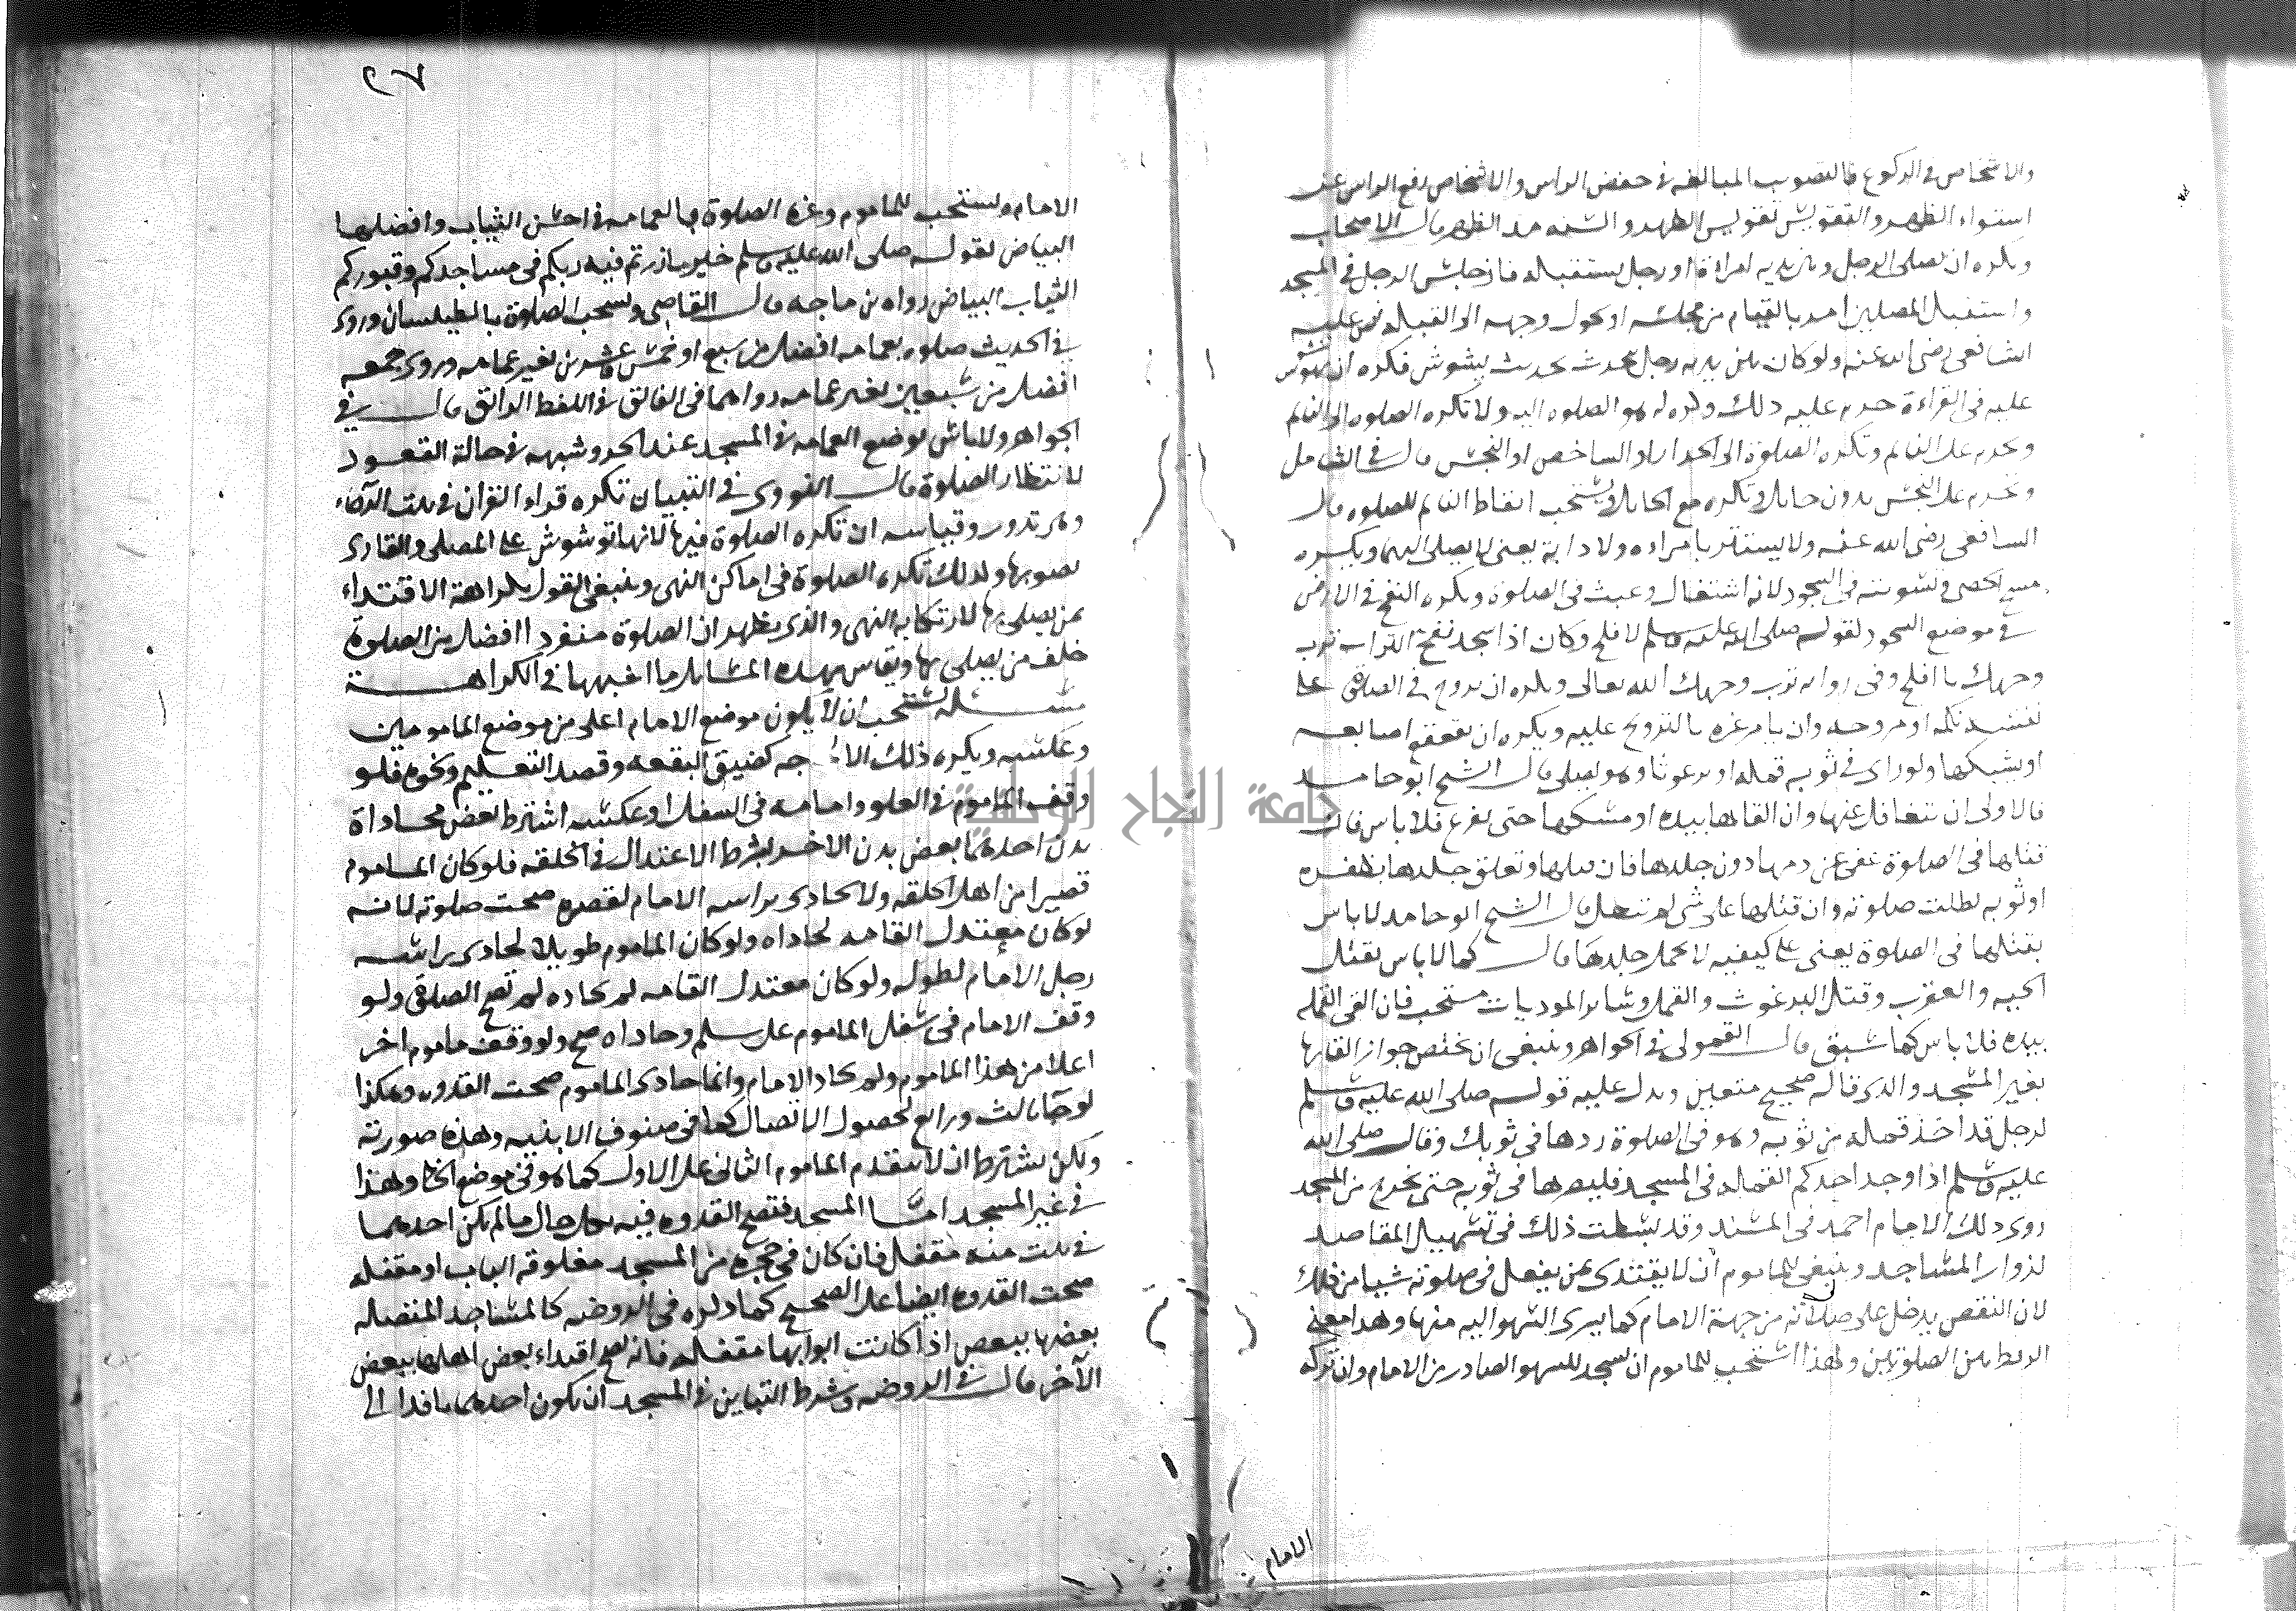 والاشخاص في الركوع فالتصويب المبالغه في خفض الراس والاشخاص رفع الراس عن
استواء الظهر والتقويس تقويس الظهر والسنه مد الظهر قال الاصحاب
ويكره ان يصلي الرجل وبين يديه امراة او رجل يستقبله فان جلس الرجل في المسجد
واستقبل المصلين امر بالقيام من مجلسه او يحول وجهه الى القبله نص عليه
الشافعي رضي الله عنه ولو كان بين يديه رجل يحدث بحديث يشوش فكره ان يهوش
عليه في القراءة حرم عليه ذلك وكره له هو الصلوه اليه ولا تكره الصلوه الى النايم
وتحرم على النايم وتكره الصلوة الى الجدار او الشاخص او النجس قال في الشامل
وتحرم على النجس بدون حايل وتكره مع الحايل ويستحب ايقاظ النايم للصلوه قال
الشافعي رضي الله عنه ولا يستتر بامراه ولا دابة يعني لا يصلي اليهما ويكره
مسح الحصى وتسويته في السجود لانه اشتغال وعبث في الصلوة ويكره النفخ في الارض
في موضع السجود لقوله صلى الله عليه وسلم لافلح وكان اذا سجد نفخ التراب ترب
وجهك يا افلح وفي رواية ترب وجهك الله تعالى ويكره ان يروح في الصلوة على
نفسه بكمه او مروحه وان يامر غيره بالترويح عليه ويكره ان يفقع اصابعه
او يشبكها ولو راى في ثوبه قمله او برغوثا وهو يصلي قال الشيخ ابو حامد
فالاولى ان يتغافل عنها وان القاها بيده او مسكها حتى يفرغ فلا باس فان
قتلها في الصلوة عفي عن دمها دون جلدها فان قتلها وتعلق جلدها بظفره
او ثوبه بطلت صلوته وان قتلها على شي لم تبطل قال الشيخ ابو حامد لا باس
بقتلها في الصلوة يعني على كيفيه لا يحمل جلدها قال كما لا باس بقتل
الحيه والعقرب وقتل البرغوث والقمل وسائر الموذيات مستحب فان القى القمله
بيده فلا باس كما سبق قال القمولي في الجواهر وينبغي ان يختص جواز القايها
بغير المسجد والذي قاله صحيح متعين ويدل عليه قوله صلى الله عليه وسلم
لرجل قد اخذ قمله من ثوبه وهو في الصلوة ردها في ثوبك وقال صلى الله
عليه وسلم اذا وجد احدكم القمله في المسجد فليصرها في ثوبه حتى يخرج من المسجد
روى ذلك الامام احمد في المسند وقد بسطت ذلك في تسهيل المقاصد
لزوار المساجد وينبغي للماموم ان لا يقتدي بمن يفعل في صلوته شيا من ذلك
لان النقص يدخل على صلاته من جهة الامام كما يسري السهو اليه منها وهذا معنى
الربط بين الصلوتين ولهذا استحب للماموم ان يسجد للسهو الصادر من الامام وان تركه
الامام
٢٧
الامام ويستحب للماموم وغيره الصلوة بالعمامه في احسن الثياب وافضلها
البياض لقوله صلى الله عليه وسلم خير ما زرتم فيه ربكم في مساجدكم وقبوركم
الثياب البياض رواه بن ماجه قال القاضي ويستحب الصلوة بالطيلسان وروي
في الحديث صلوه بعمامه افضل من سبع او خمس وعشرين بغير عمامه وروي جمعه
افضل من سبعين بغير عمامه رواهما في الفائق في اللفظ الرائق قال في
الجواهر ولا باس بوضع العمامه في المسجد عند الحر وشبهه في حالة القعود
لانتظار الصلوة قال النووي في التبيان تكره قراءة القران في بيت الرحاء
وهي تدور وقياسه ان تكره الصلوة فيها لانها تشوش على المصلي والقاري
بصوتها ولذلك تكره الصلوة في اماكن النهي وينبغي القول بكراهة الاقتداء
بمن يصلي بها لارتكابه النهي والذي يظهر ان الصلوة منفردا افضل من الصلوة
خلف من يصلي بها ويقاس بهذه المسايل ما اشبهها في الكراهة
مسئله يستحب ان لا يكون موضع الامام اعلى من موضع المامومين
وعكسه ويكره ذلك الا جه كضيق البقعه وقصد التعليم ونحوه فلو
وقف الماموم في العلو وامامه في السفل او عكسه اشترط بعض محاداة
بدن احدهما بعض بدن الاخر بشرط الاعتدال في الخلقه فلو كان الماموم
قصيرا من اهل الخلقه ولا يحاذي براسه الامام لقصره صحت صلوته لانه
لو كان معتدل القامه لحاداه ولو كان الماموم طويلا لحادى براسه
رجل الامام لطوله ولو كان معتدل القامه لم يحاده لم تصح الصلوة ولو
وقف الامام في سفل الماموم على سلم وحاداه صح ولو وقف ماموم اخر
اعلا من هذا الماموم ولم يحاد الامام وانما حادى الماموم صحت القدوه وهكذا
لو جا ثالث ورابع لحصول الاتصال كما في صفوف الابنيه وهذه صورته
ولكن يشترط ان لا يتقدم الماموم الثاني على الاول كما هو في موضع الخط وهذا
في غير المسجد امّا المسجد فتصح القدوه فيه بكل حال ما لم يكن احدهما
في بيت منه مقفل فان كان في حجره من المسجد مغلوقه الباب او مقفله
صحت القدوه ايضا على الصحيح كما ذكره في الروضه كالمساجد المتصله
بعضها ببعض اذا كانت ابوابها مقفله فانه يصح اقتداء بعض اهلها ببعض
الآخر قال في الروضه وشرط التباين في المسجد ان يكون احدهما نافذا الى
جامعة النجاح الوطنية